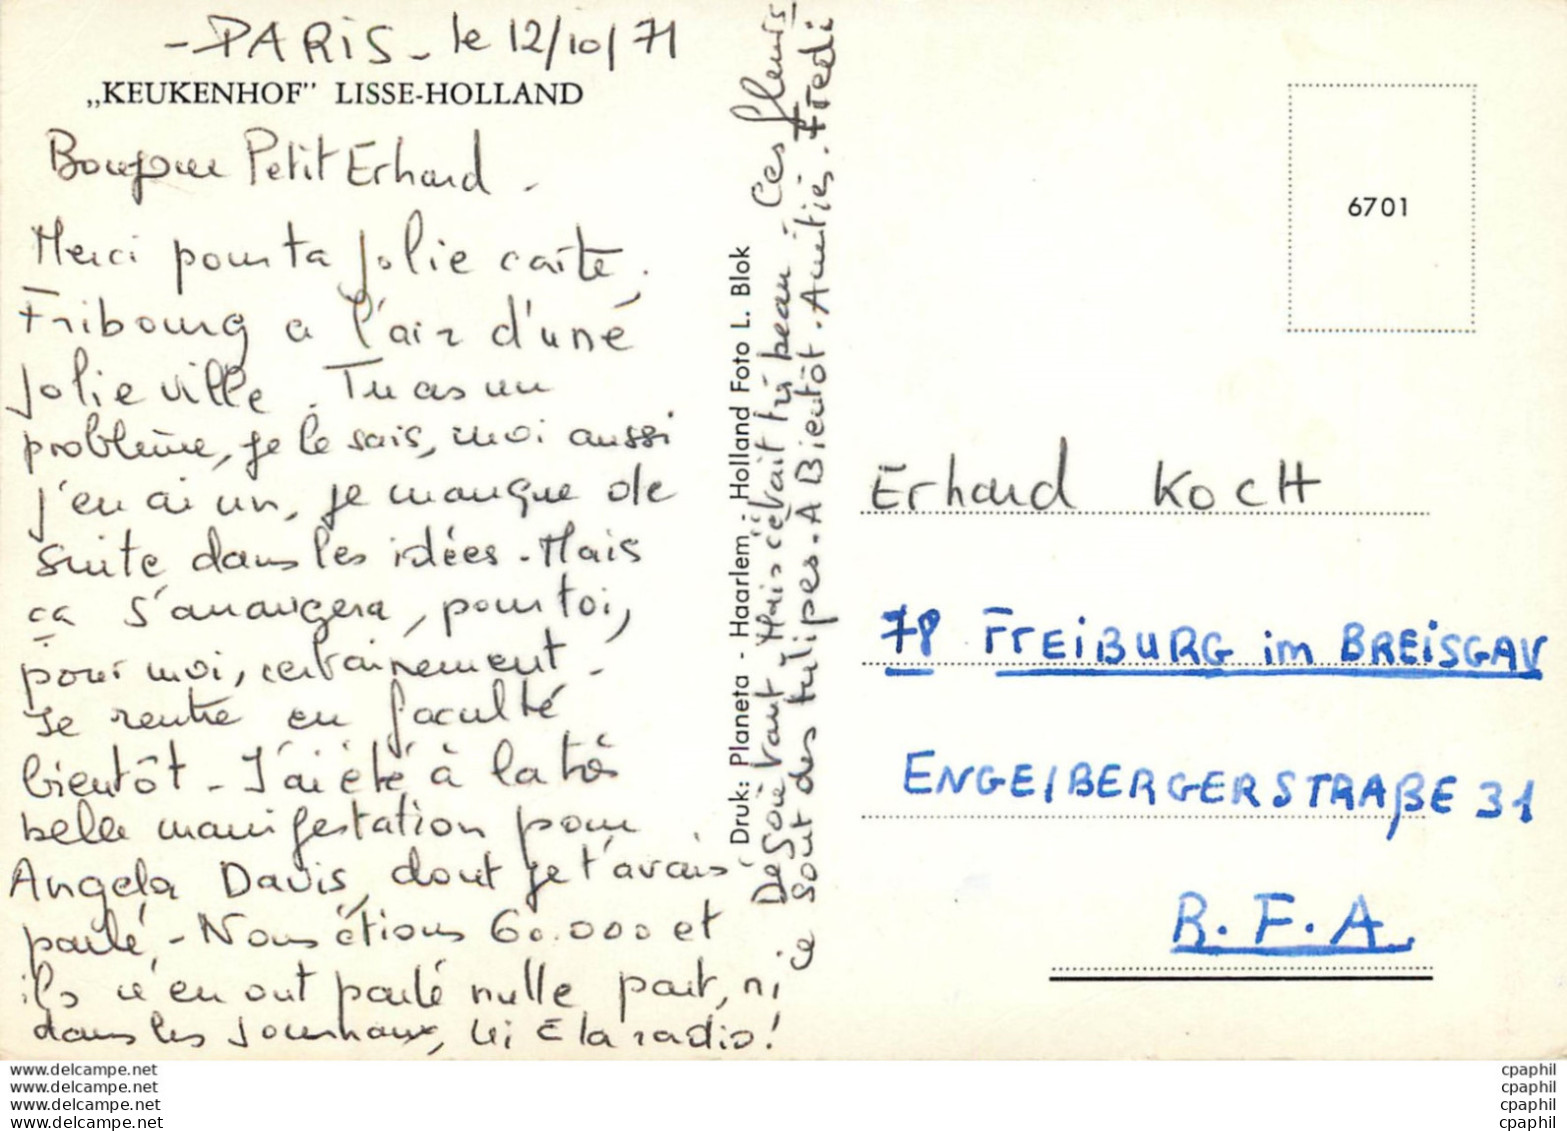 - PARIS - le 12/10/71
„KEUKENHOF” LISSE-HOLLAND
Bonjour Petit Erhard -
Merci pour ta jolie carte,
Fribourg a l'air d'une
jolie ville. Tu as un
problème, je le sais, moi aussi
j'en ai un, je manque de
suite dans les idées - Mais
ça s'arrangera, pour toi,
pour moi, certainement -
Je rentre en faculté
bientôt - J'ai été à la très
belle manifestation pour
Angela Davis, dont je t'avais
parlé - Nous étions 60.000 et
ils n'en ont parlé nulle part, ni
dans les journaux, ni à la radio !
Druk: Planeta - Haarlem - Holland Foto L. Blok
Mais c'était très beau. Ces fleurs
ce sont des tulipes. A Bientôt. Amitiés. Fredi
6701
Erhard KocH
78 FREIBURG im BREISGAU
ENGELBERGERSTRAßE 31
R.F.A.
www.delcampe.net
www.delcampe.net
www.delcampe.net
www.delcampe.net
cpaphil
cpaphil
cpaphil
cpaphil